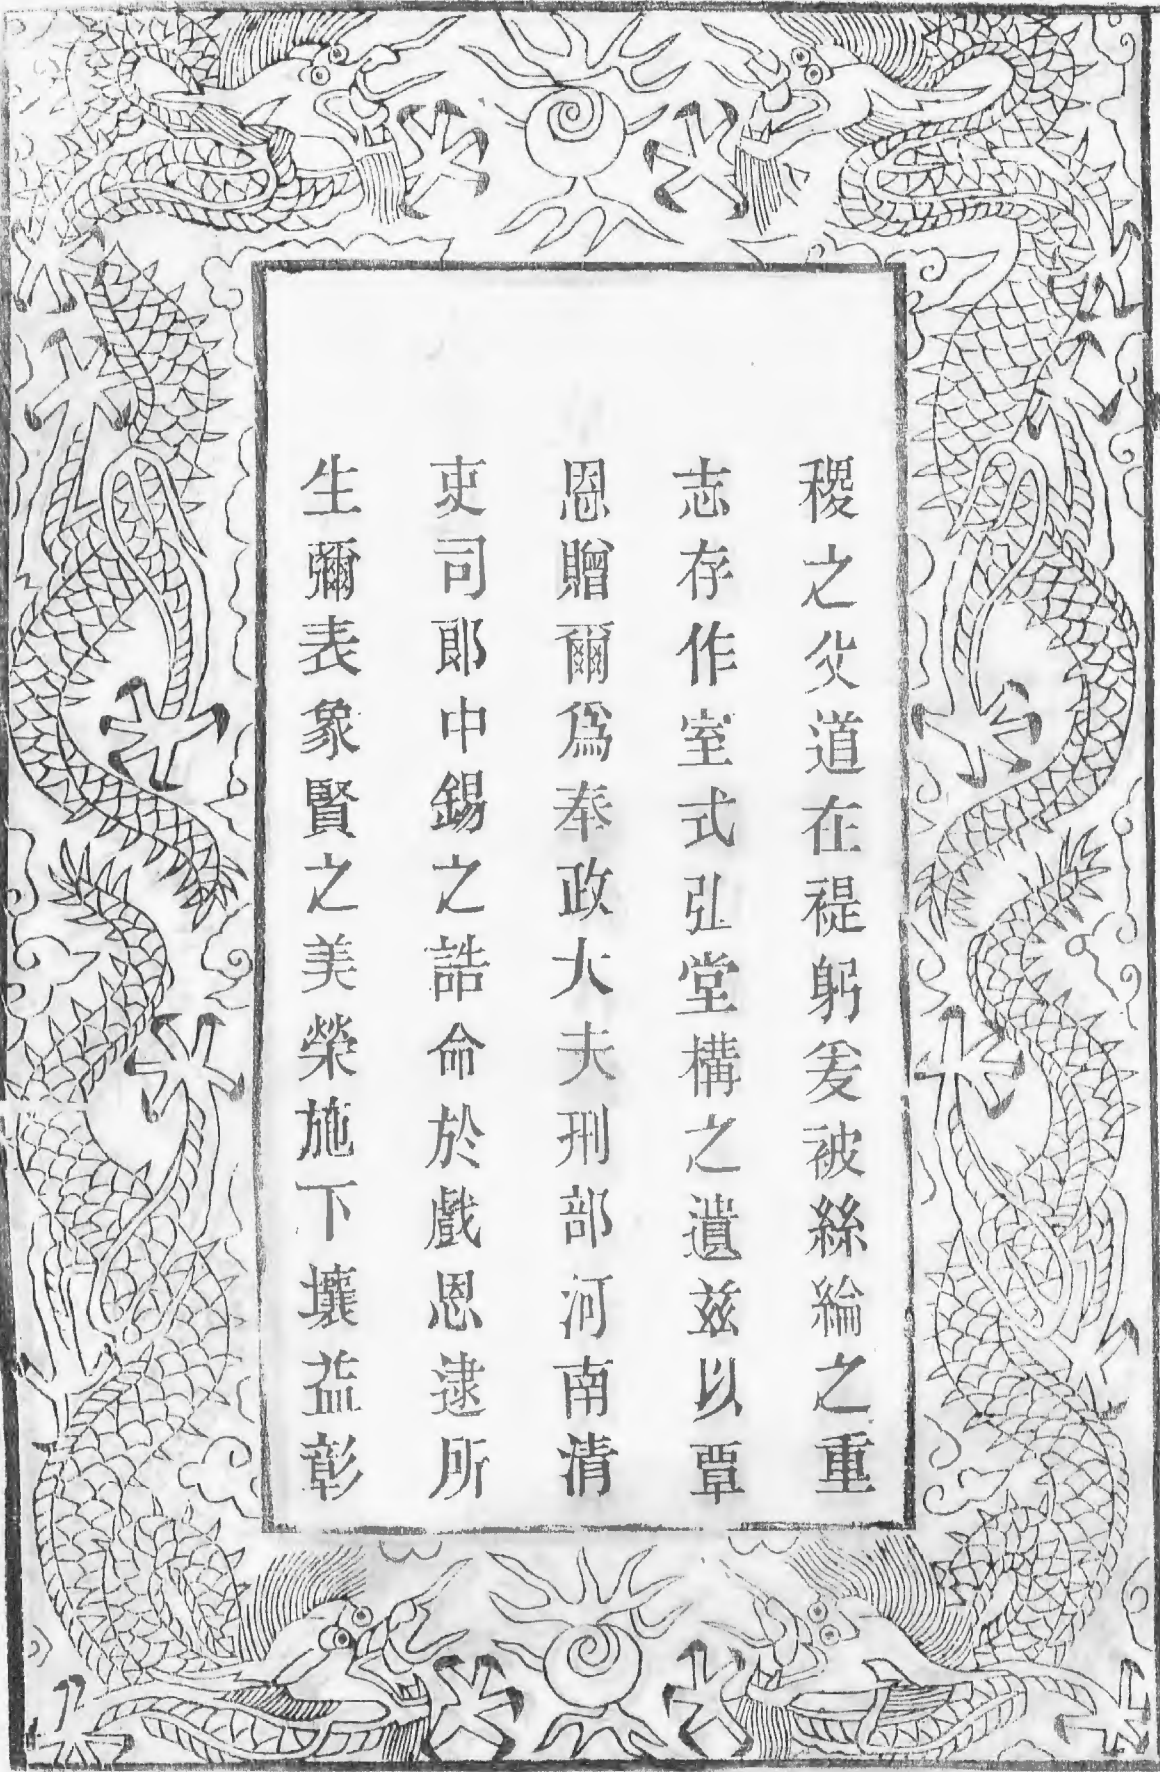 稷之父道在禔躬爰被絲綸之重
志存作室式弘堂構之遺兹以覃
恩贈爾為奉政大夫刑部河南清
吏司郎中錫之誥命於戲恩逮所
生彌表象賢之美榮施下壤益彰